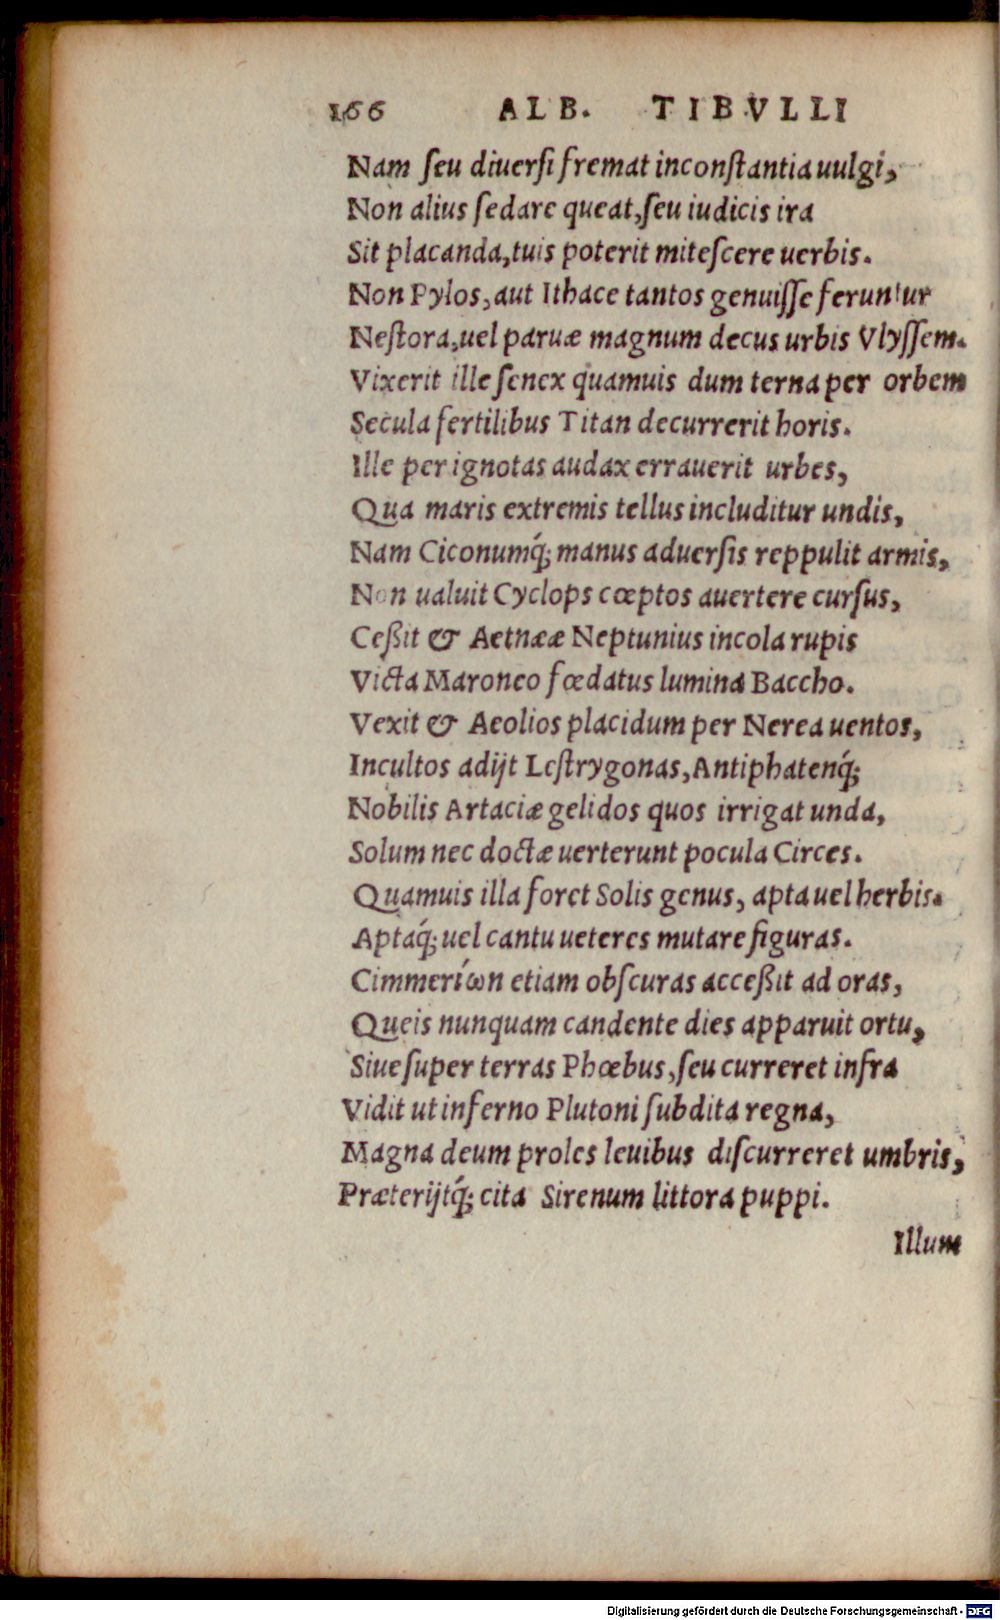 166 ALB. TIBVLLI
Nam ſeu diuerſi fremat inconſtantia uulgi,
Non alius ſedare queat, ſeu iudicis ira
Sit placanda, tuis poterit miteſcere uerbis.
Non Pylos, aut Ithace tantos genuiſſe feruntur
Neſtora, uel paruæ magnum decus urbis Vlyſſem.
Vixerit ille ſenex quamuis dum terna per orbem
Secula fertilibus Titan decurrerit horis.
Ille per ignotas audax errauerit urbes,
Qua maris extremis tellus includitur undis,
Nam Ciconumq́; manus aduerſis reppulit armis,
Non ualuit Cyclops cœptos auertere curſus,
Ceßit & Aetnææ Neptunius incola rupis
Victa Maroneo fœdatus lumina Baccho.
Vexit & Aeolios placidum per Nerea uentos,
Incultos adijt Leſtrygonas, Antiphatenq́;
Nobilis Artaciæ gelidos quos irrigat unda,
Solum nec doctæ uerterunt pocula Circes.
Quamuis illa foret Solis genus, apta uel herbis.
Aptaq́; uel cantu ueteres mutare figuras.
Cimmeríωn etiam obſcuras acceßit ad oras,
Queis nunquam candente dies apparuit ortu,
Siue ſuper terras Phœbus, ſeu curreret infra
Vidit ut inferno Plutoni ſubdita regna,
Magna deum proles leuibus diſcurreret umbris,
Præterijtq́; cita Sirenum littora puppi.
Illum
Digitalisierung gefördert durch die Deutsche Forschungsgemeinschaft - DFG